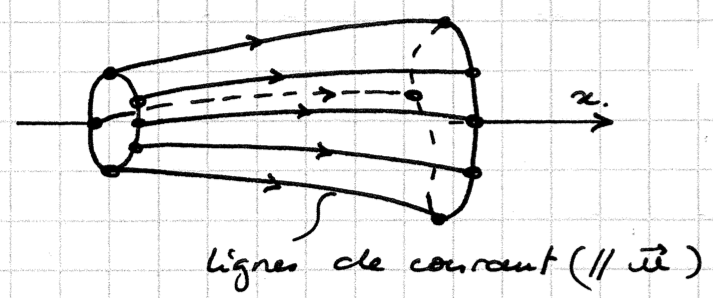 x.
lignes de courant (// \vec{u})